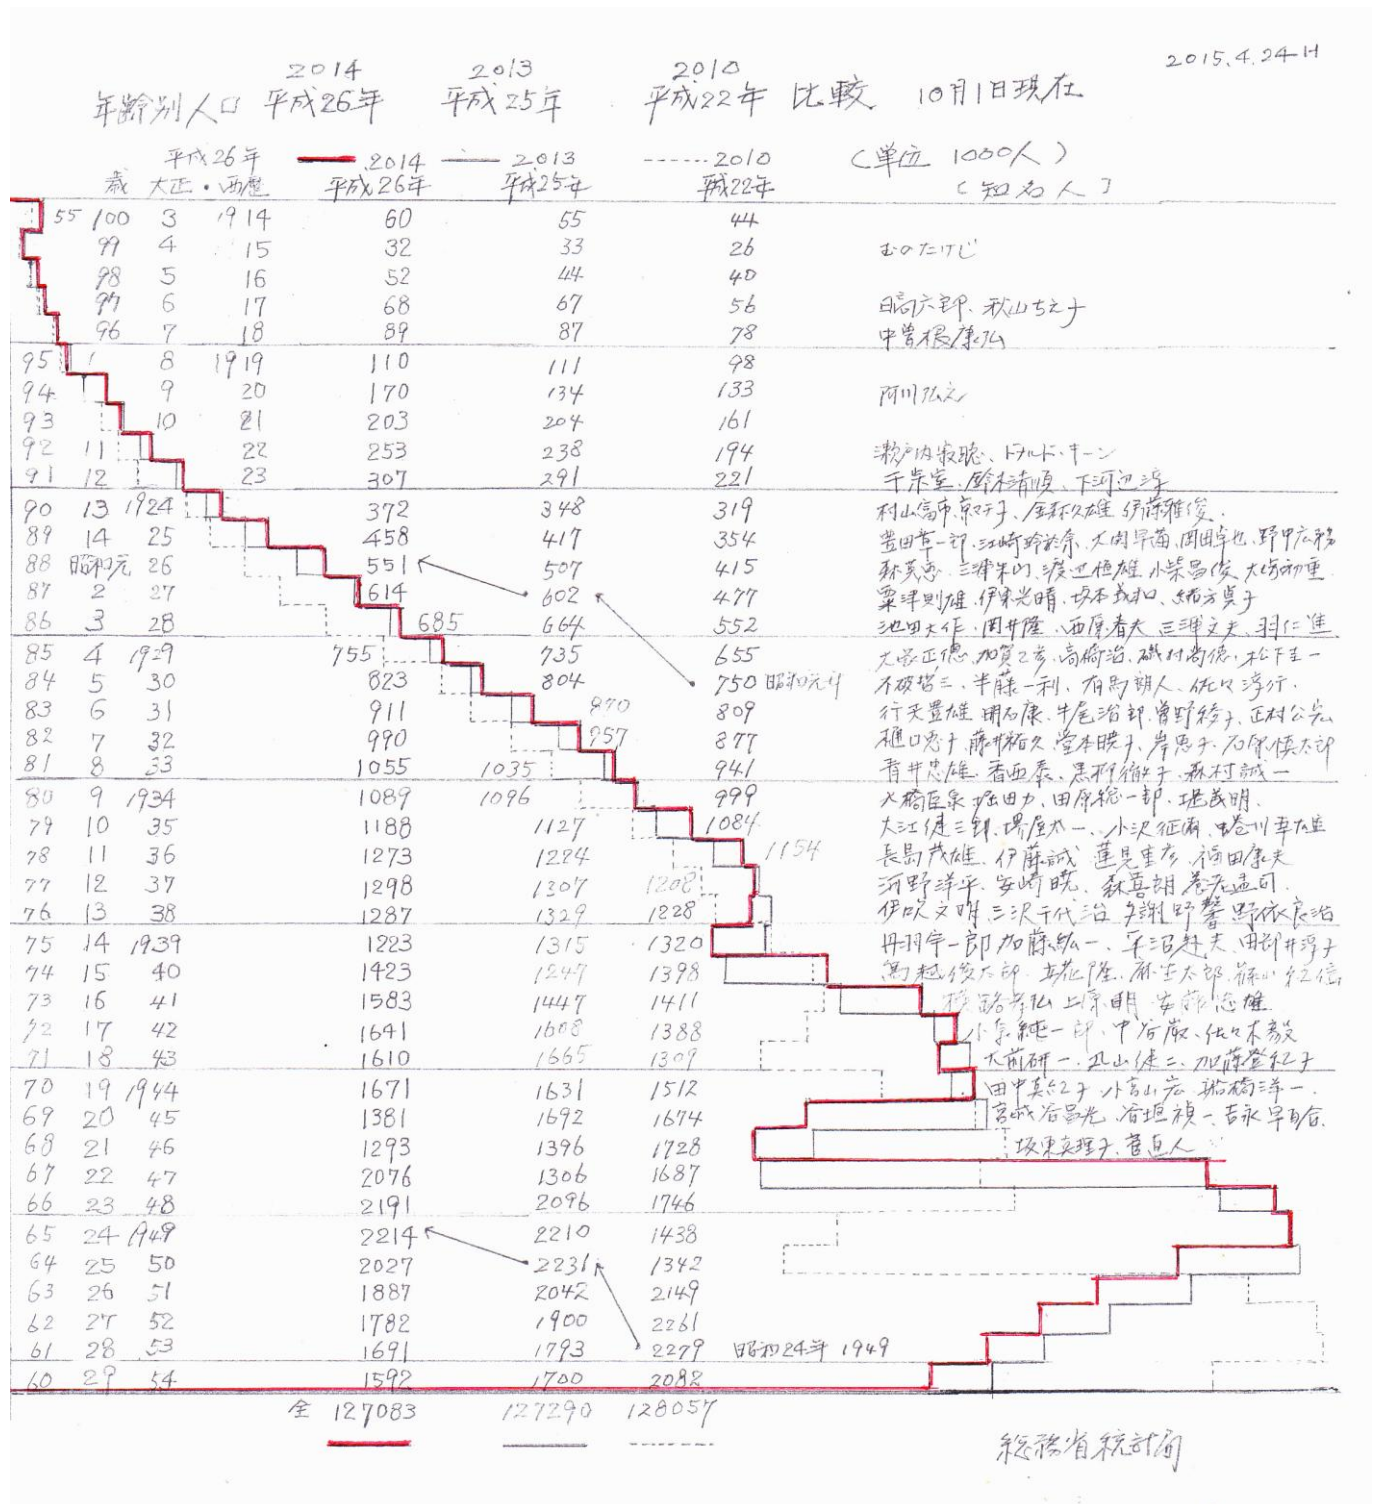 2015.4.24-H
2014 2013 2010
年齢別人口 平成26年 平成25年 平成22年 比較 10月1日現在
平成26年 2014 2013 2010 (単位 1000人)
歳 大正・西暦 平成26年 平成25年 平成22年 (知名人)
55 100 3 1914 60 55 44
99 4 15 32 33 26 むのたけじ
98 5 16 52 44 40
97 6 17 68 67 56 日高六郎、秋山ちえ子
96 7 18 89 87 78 中曽根康弘
95 8 1919 110 111 98
94 9 20 170 134 133 阿川弘之
93 10 21 203 204 161
92 11 22 253 238 194 瀬戸内寂聴、ドナルド・キーン
91 12 23 307 291 221 千宗室、鈴木清順、下河辺淳
90 13 1924 372 348 319 村山富市、京マチ子、金森久雄 伊藤雅俊
89 14 25 458 417 354 豊田章一郎、江崎玲於奈、大関早苗、岡田卓也、野中広務
88 昭和元 26 551 507 415 森英恵、三浦朱門、渡辺恒雄、小柴昌俊、大場初重
87 2 27 614 602 477 粟津則雄、伊東光晴、坂本義和、緒方貞子
86 3 28 685 664 552 池田大作、岡井隆、西原春夫、三浦文夫、羽仁進
85 4 1929 755 735 655 加賀乙彦、高橋治、磯村尚徳、松下圭一
84 5 30 823 804 750 昭和元年 不破哲三、半藤一利、有馬朗人、佐々淳行
83 6 31 911 870 809 行天豊雄、明石康、牛尾治郎、曽野綾子、正村公宏
82 7 32 990 957 877 樋口恵子、藤井裕久、堂本暁子、岸恵子、石原慎太郎
81 8 33 1055 1035 941 青井忠雄、香西泰、黒柳徹子、森村誠一
80 9 1934 1089 1096 999 大橋巨泉、堀田力、田原総一郎、堤義明
79 10 35 1188 1127 1084 大江健三郎、堺屋太一、小沢征爾、蜷川幸雄
78 11 36 1273 1224 1154 長島茂雄、伊藤誠、蓮見重彦、福田康夫
77 12 37 1298 1307 1208 河野洋平、安崎暁、森喜朗
76 13 38 1287 1329 1228 伊吹文明、三沢千代治、与謝野馨、野依良治
75 14 1939 1223 1315 1320 丹羽宇一郎、加藤紘一、平沼赳夫、田部井淳子
74 15 40 1423 1247 1398 鳥越俊太郎、立花隆、麻生太郎、篠山紀信
73 16 41 1583 1447 1411 上原明、安藤忠雄
72 17 42 1641 1608 1388 小泉純一郎、中谷巌、佐々木毅
71 18 43 1610 1665 1309 大前研一、丸山健二、加藤登紀子
70 19 1944 1671 1631 1512 田中真紀子、小宮山宏、船橋洋一
69 20 45 1381 1692 1674 宮城谷昌光、谷垣禎一、吉永早百合
68 21 46 1293 1396 1728 坂東真理子、菅直人
67 22 47 2076 1306 1687
66 23 48 2191 2096 1746
65 24 1949 2214 2210 1438
64 25 50 2027 2231 1342
63 26 51 1887 2042 2149
62 27 52 1782 1900 2261
61 28 53 1691 1793 2279 昭和24年 1949
60 29 54 1592 1700 2082
全 127083 127290 128057
総務省統計局